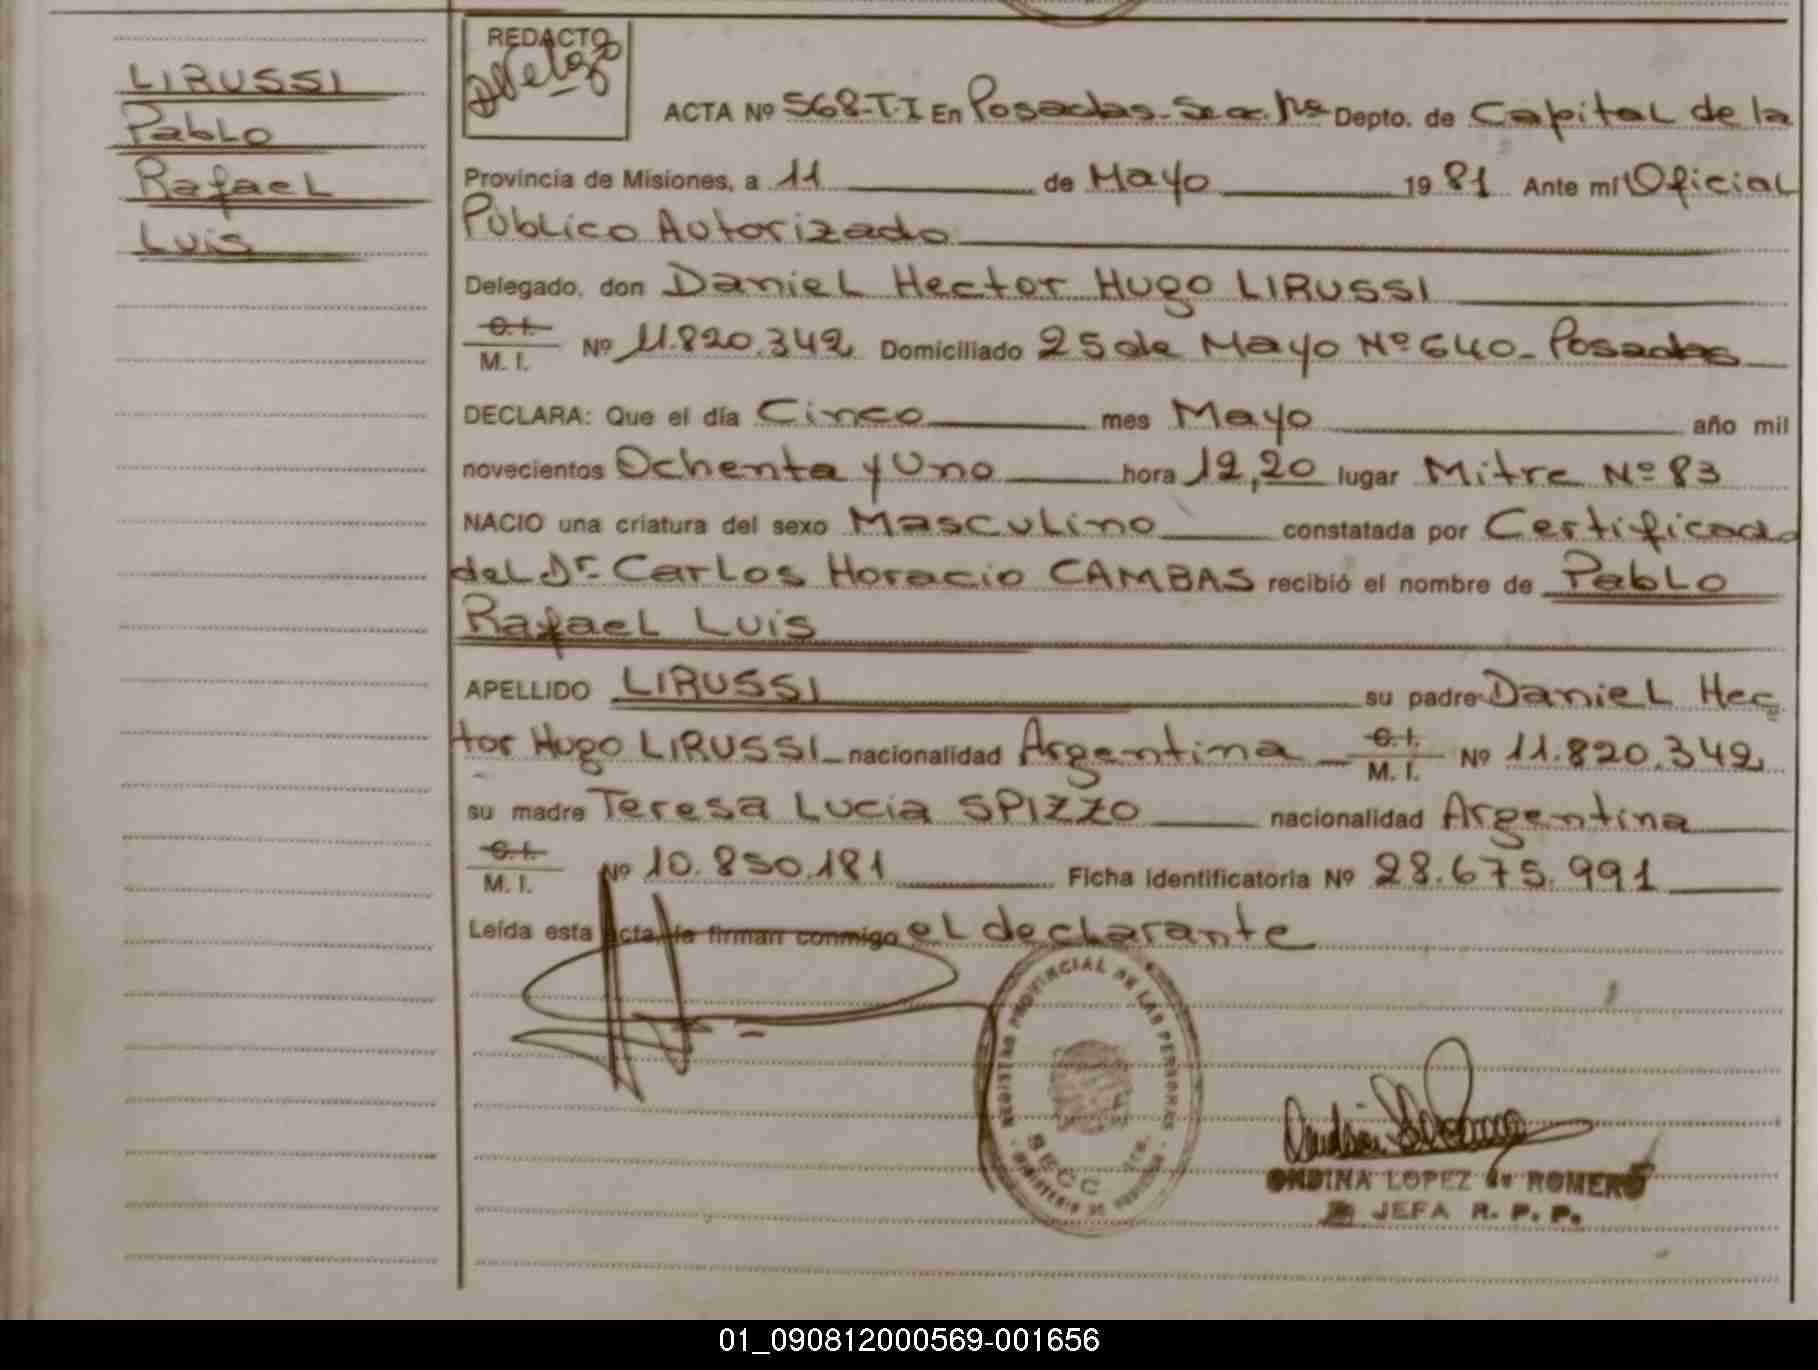 LIRUSSI
Pablo
Rafael
Luis
REDACTO
ACTA Nº 568-T-I En Posadas-Secc. 1ra Depto. de Capital de la
Provincia de Misiones, a 11 de Mayo 1981 Ante mí Oficial
Público Autorizado
Delegado, don Daniel Hector Hugo LIRUSSI
C.I.
M.I. Nº 11.820.342 Domiciliado 25 de Mayo Nº 640- Posadas
DECLARA: Que el día Cinco mes Mayo año mil
novecientos Ochenta y Uno hora 12,20 lugar Mitre Nº 83
NACIO una criatura del sexo Masculino constatada por Certificado
del Dr. Carlos Horacio CAMBAS recibió el nombre de Pablo
Rafael Luis
APELLIDO LIRUSSI su padre Daniel Hec
tor Hugo LIRUSSI nacionalidad Argentina C.I. M.I. Nº 11.820.342
su madre Teresa Lucia SPIZZO nacionalidad Argentina
C.I.
M.I. Nº 10.850.181 Ficha identificatoria Nº 28.675.991
Leída esta acta, la firman conmigo el declarante
REGISTRO PROVINCIAL DE LAS PERSONAS
SECC. 1ra.
MINISTERIO DE GOBIERNO
ONDINA LOPEZ de ROMERO
JEFA R. P. P.
01_090812000569-001656